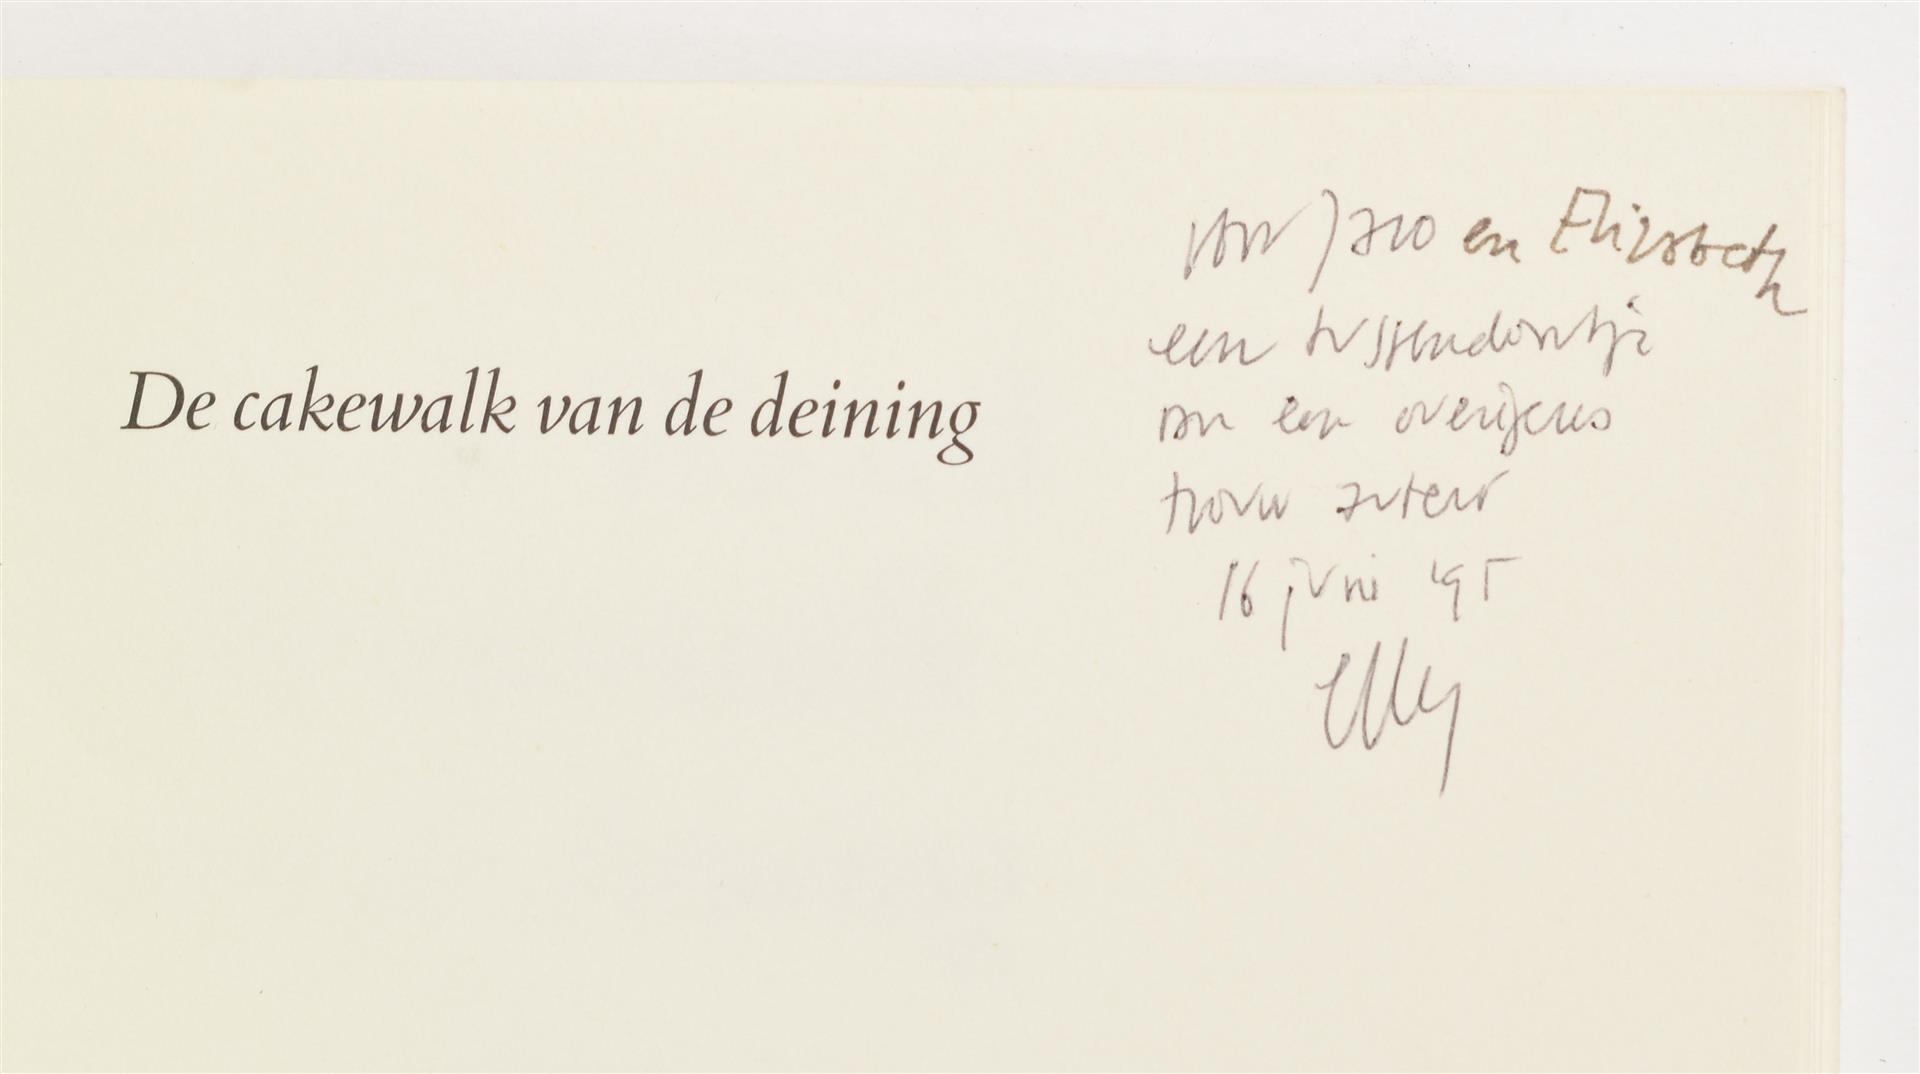 De cakewalk van de deining
voor Jaco en Elizabeth
een tussendoortje
van een overigens
trouw auteur
16 juni '95
Elly